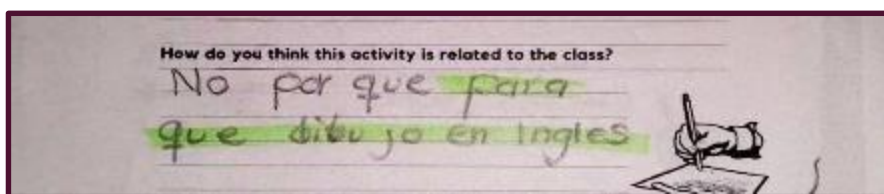 How do you think this activity is related to the class?
No por que para
que dibujo en Ingles